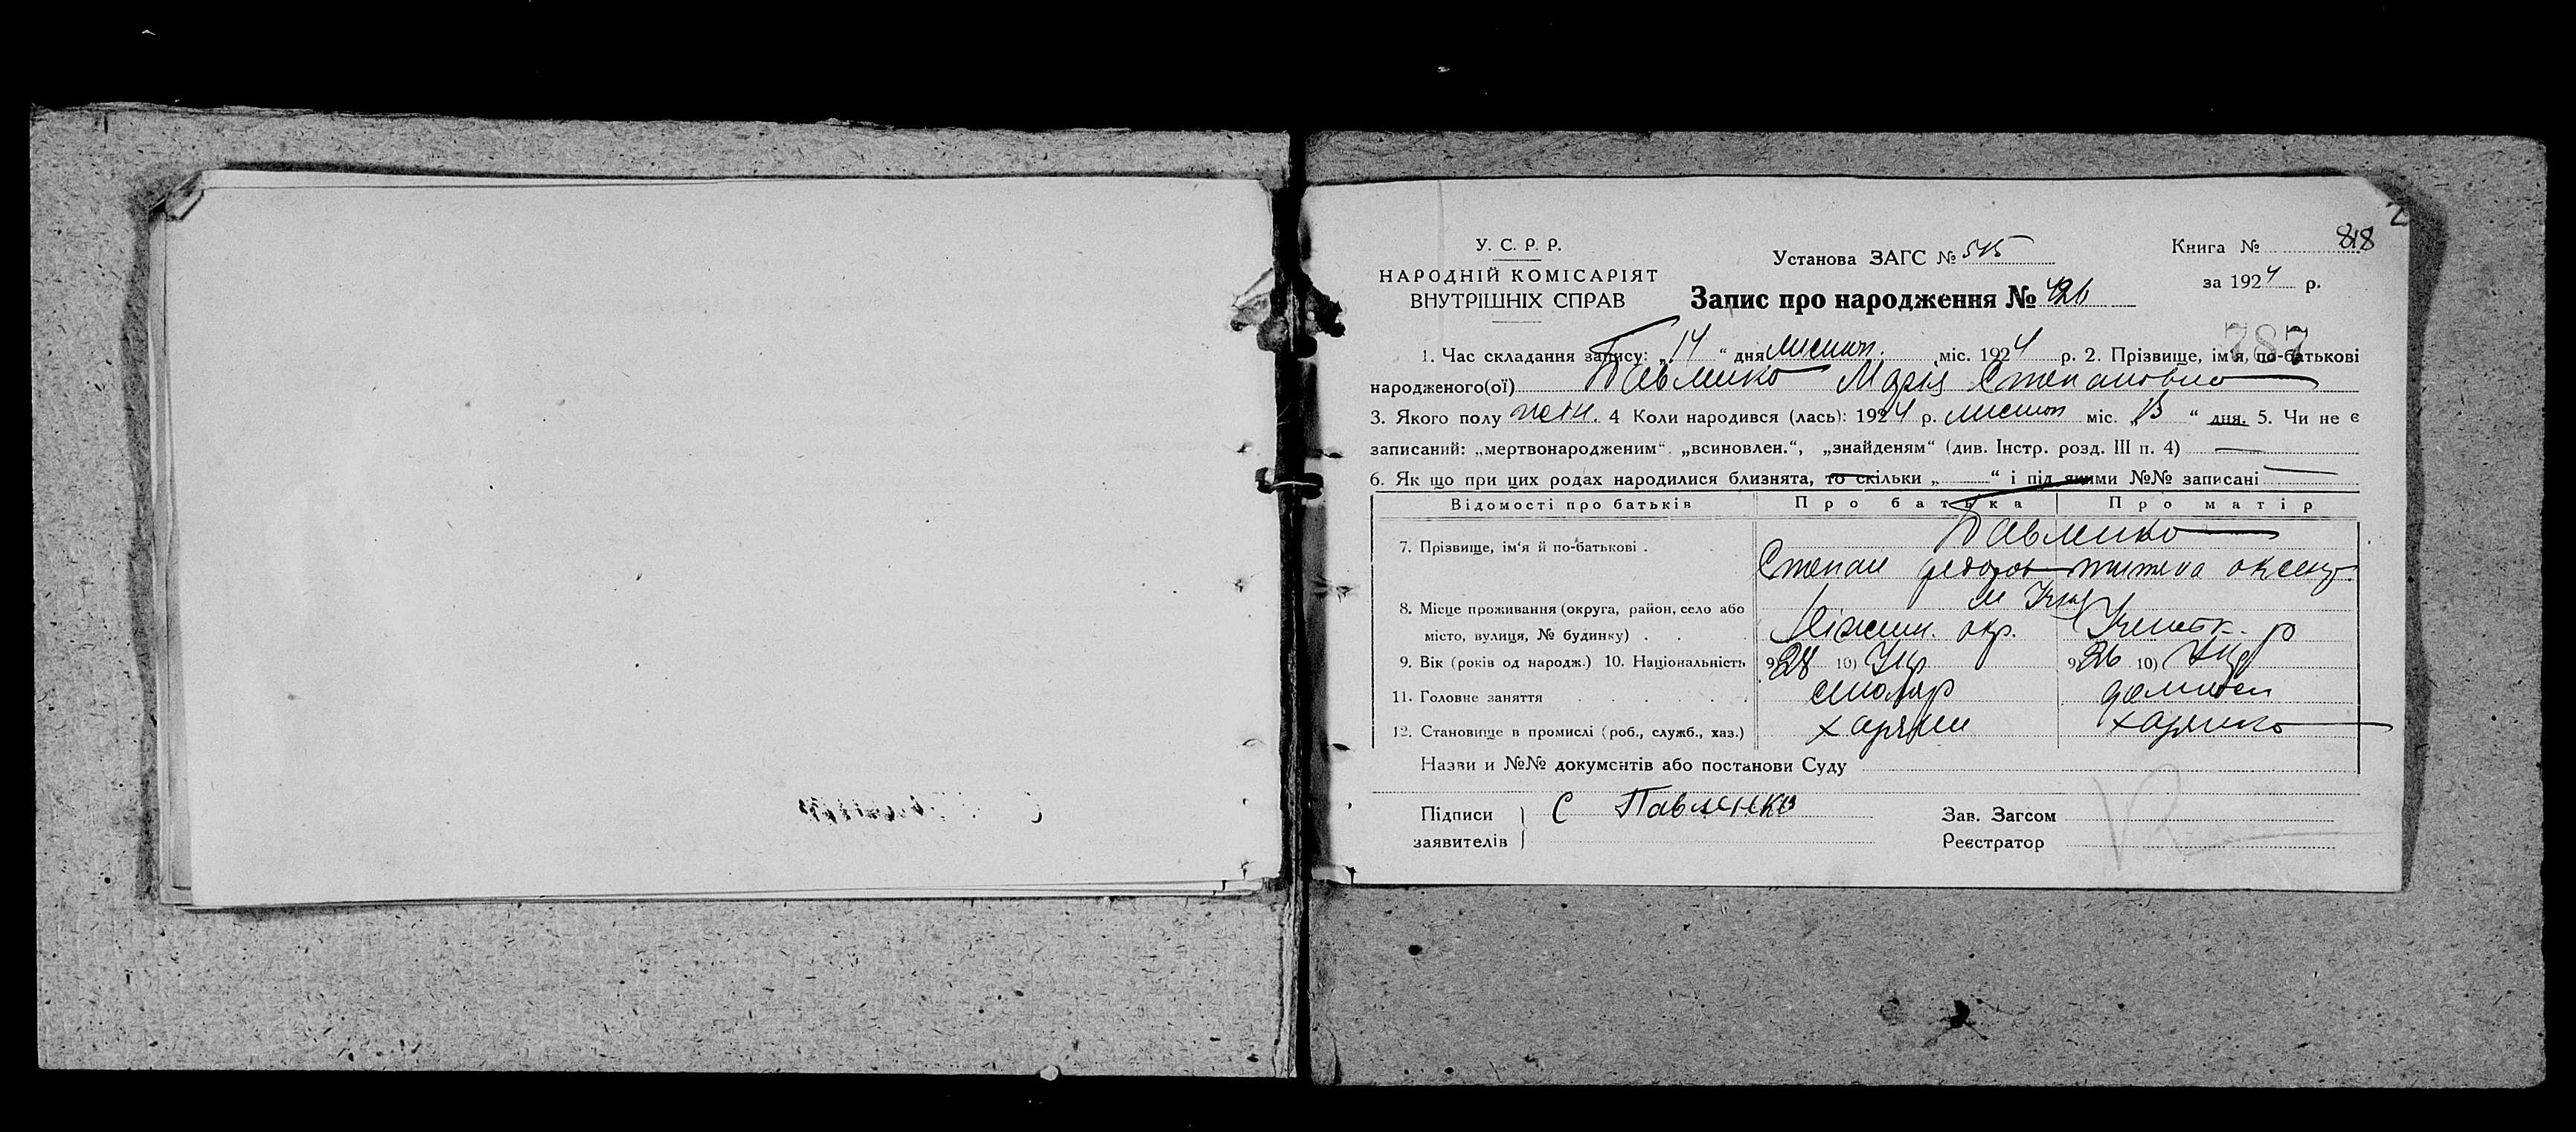 2
818
У. С. Р. Р.
НАРОДНІЙ КОМІСАРІЯТ
ВНУТРІШНІХ СПРАВ
Установа ЗАГС № 515
Запис про народження № 426
Книга №
за 1924 р.
787
1. Час складання запису: „14“ дня листоп. міс. 1924 р. 2. Прізвище, ім'я, по-батькові
народженого(ої) Павленко Марія Степановна
3. Якого полу жін. 4 Коли народився (лась): 1924 р. листоп міс. „13“ дня. 5. Чи не є
записаний: „мертвонародженим“ „всиновлен.“, „знайденям“ (див. Інстр. розд. III п. 4)
6. Як що при цих родах народилися близнята, то скільки „ “ і під якими №№ записані
Відомості про батьків Про батька Про матір
7. Прізвище, ім'я й по-батькові . Павленко
Степан федоров оксент.
8. Місце проживання (округа, район, село або
місто, вулиця, № будинку) . . . Ніжин. окр.
9. Вік (років од народж.) 10. Національність 9) 28 10) Укр 9) 26 10) Укр
11. Головне заняття столяр
12. Становище в промислі (роб., служб., хаз.) хазяин хазяйка
Назви и №№ документів або постанови Суду
Підписи С Павленко Зав. Загсом
заявителів Реєстратор